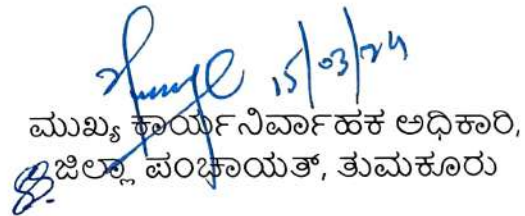 15/03/24
ಮುಖ್ಯ ಕಾರ್ಯನಿರ್ವಾಹಕ ಅಧಿಕಾರಿ,
ಜಿಲ್ಲಾ ಪಂಚಾಯತ್, ತುಮಕೂರು